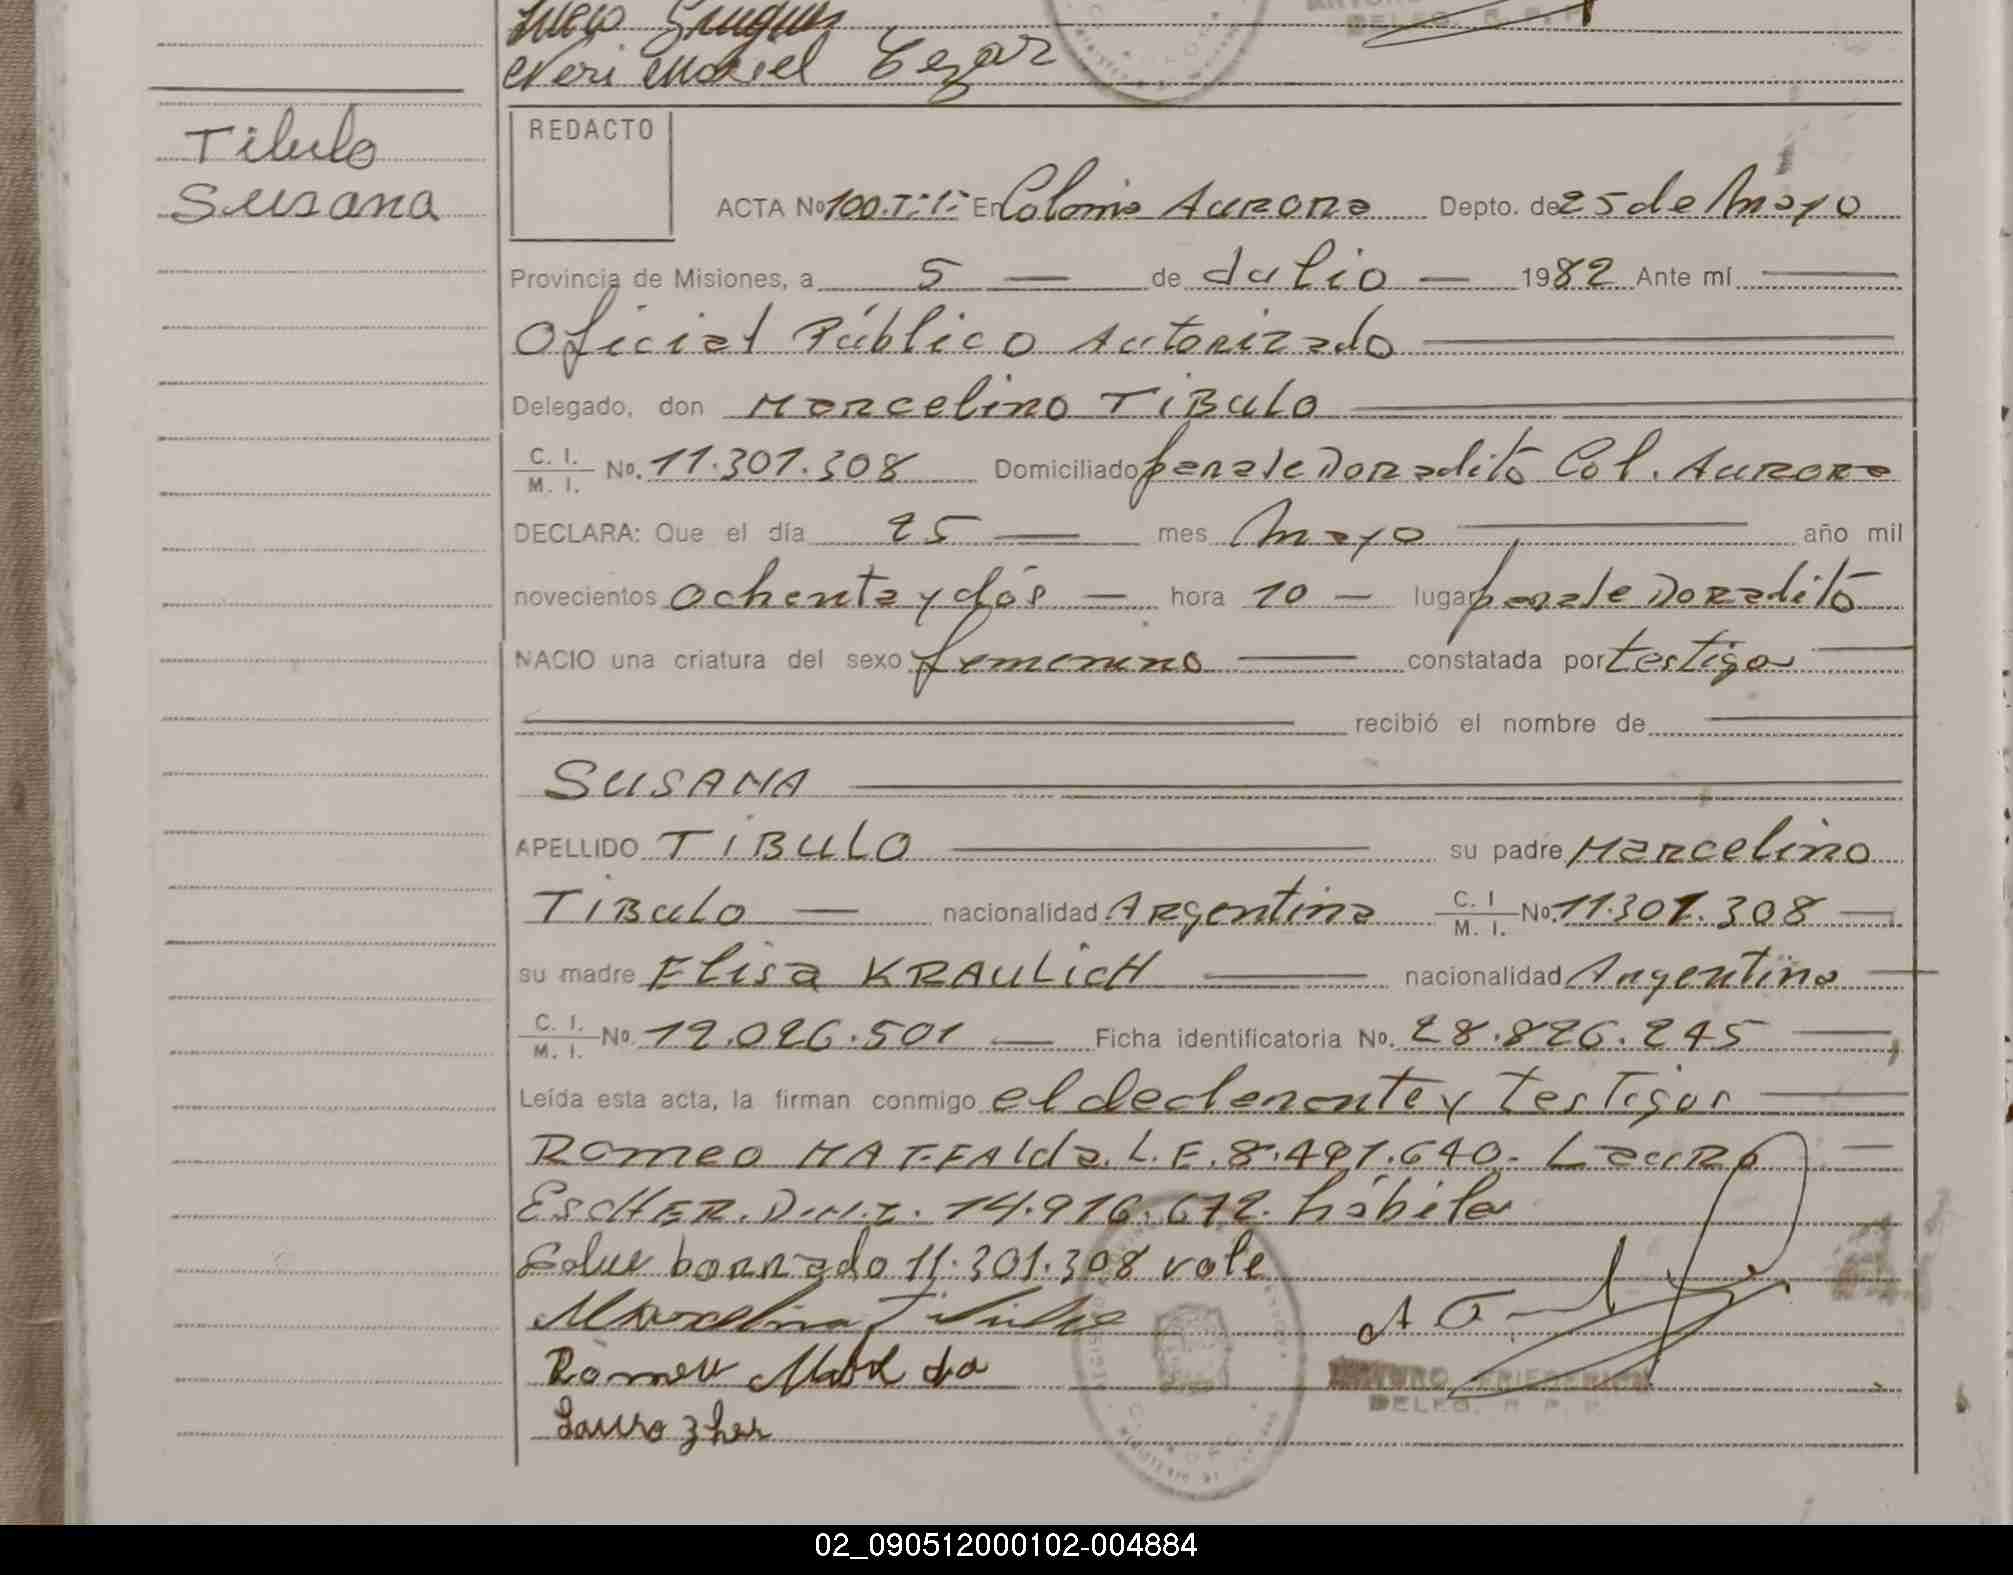 Neri Maciel Cezar
Tibulo
Susana
REDACTO
ACTA Nº 100.T:I: En Colonia Aurora Depto. de 25 de Mayo
Provincia de Misiones, a 5 — de Julio — 1982 Ante mí
Oficial Público Autorizado
Delegado, don Marcelino TiBulo
C. I. / M. I. Nº. 11.301.308 Domiciliado paraje Doradito Col. Aurora
DECLARA: Que el día 25 — mes Mayo año mil
novecientos ochenta y dós — hora 10 — lugar paraje Doradito
NACIO una criatura del sexo femenino constatada por testigos
recibió el nombre de
SUSANA
APELLIDO TIBULO su padre Marcelino
TiBulo — nacionalidad Argentina C. I / M. I. Nº. 11.301.308 —
su madre Elisa KRAULICH nacionalidad Argentina
C. I. / M. I. Nº. 12.026.501 — Ficha identificatoria Nº. 28.826.245
Leída esta acta, la firman conmigo el declarante y testigos
Romeo MATFAlda. L.E. 8.491.640. Lauro —
EscHER. D.N.I. 14.916.672. hábiles
Sobre borrado 11.301.308 vale
Marcelino Tibulo
Romeu
Lauro
ARTURO FRIEDERICH
DELEG. R. P. P.
02_090512000102-004884